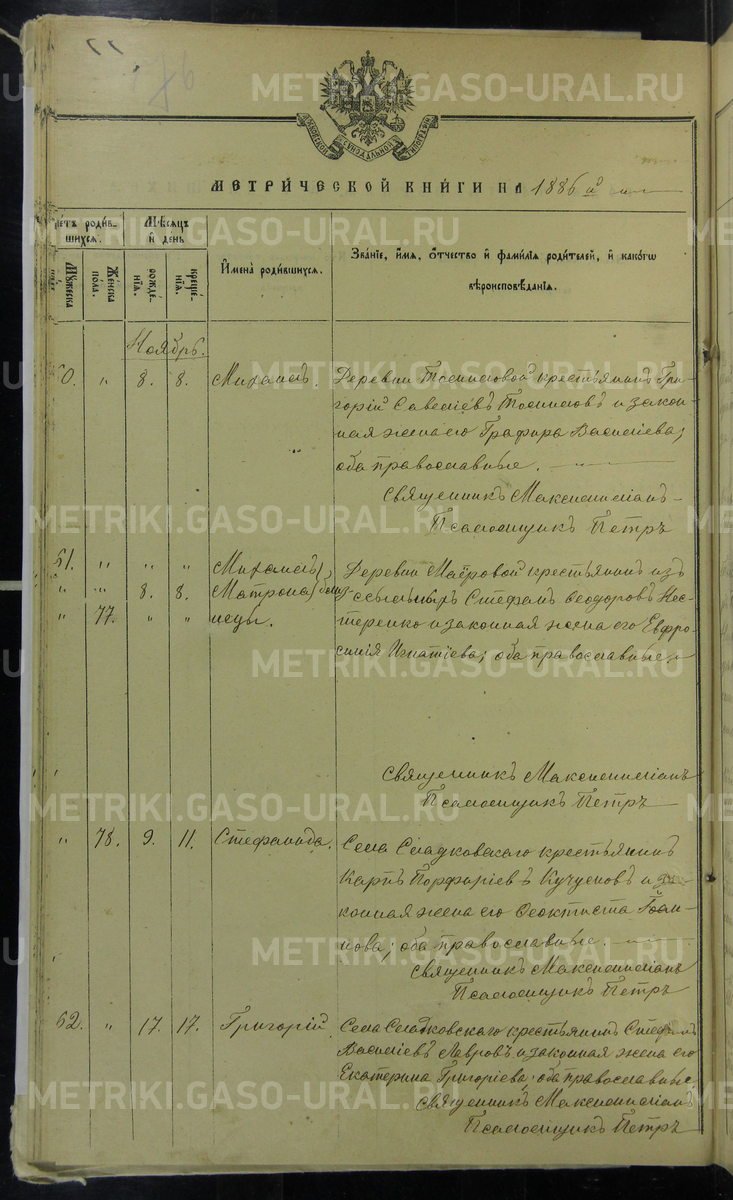 76
МЕТРИ́ЧЕСКОЙ КНИ́ГИ НА 1886й
METRIKI.GASO-URAL.RU
етъ роди́в-
шихся.
Мѣсяцъ
и҆ день
Мꙋжеска
пола.
Же́нска
по́ла.
рожде́-
нїѧ.
креще́-
нїѧ.
И҆мена̀ роди́вшихся.
Зва́нїе, и҆́мя, ѻ҆́тчество и҆ фами́лїя роди́телей, и҆ како́гѡ
вѣроисповѣ́данїя.
Ноябрь.
60. " 8. 8. Михаилъ. Деревни Томиловой крестьянинъ Гри-
горій Савеліевъ Томиловъ и закон-
ная жена его Глафира Василіева;
оба православные.
Священникъ Максимиліанъ
Псаломщикъ Петръ
61. " " " Михаилъ Деревни Маѵровой крестьянинъ изъ
" " 8. 8. Матрона близ- ссыльныхъ Стефанъ Ѳеодоровъ Нес-
" 77. " " нецы. теренко и законная жена его Евфро-
синія Игнатіева; оба православные.
Священникъ Максимиліанъ
Псаломщикъ Петръ
" 78. 9. 11. Стефанида. Села Сладковскаго крестьянинъ
Карпъ Порфиріевъ и за-
конная жена его Ѳеоктиста
нова; оба православные.
Священникъ Максимиліанъ
Псаломщикъ Петръ
62. " 17. 17. Григорій. Села Сладковскаго крестьянинъ Стефанъ
Василіевъ Лавровъ и законная жена его
Екатерина Григоріева; оба православные.
Священникъ Максимиліанъ
Псаломщикъ Петръ